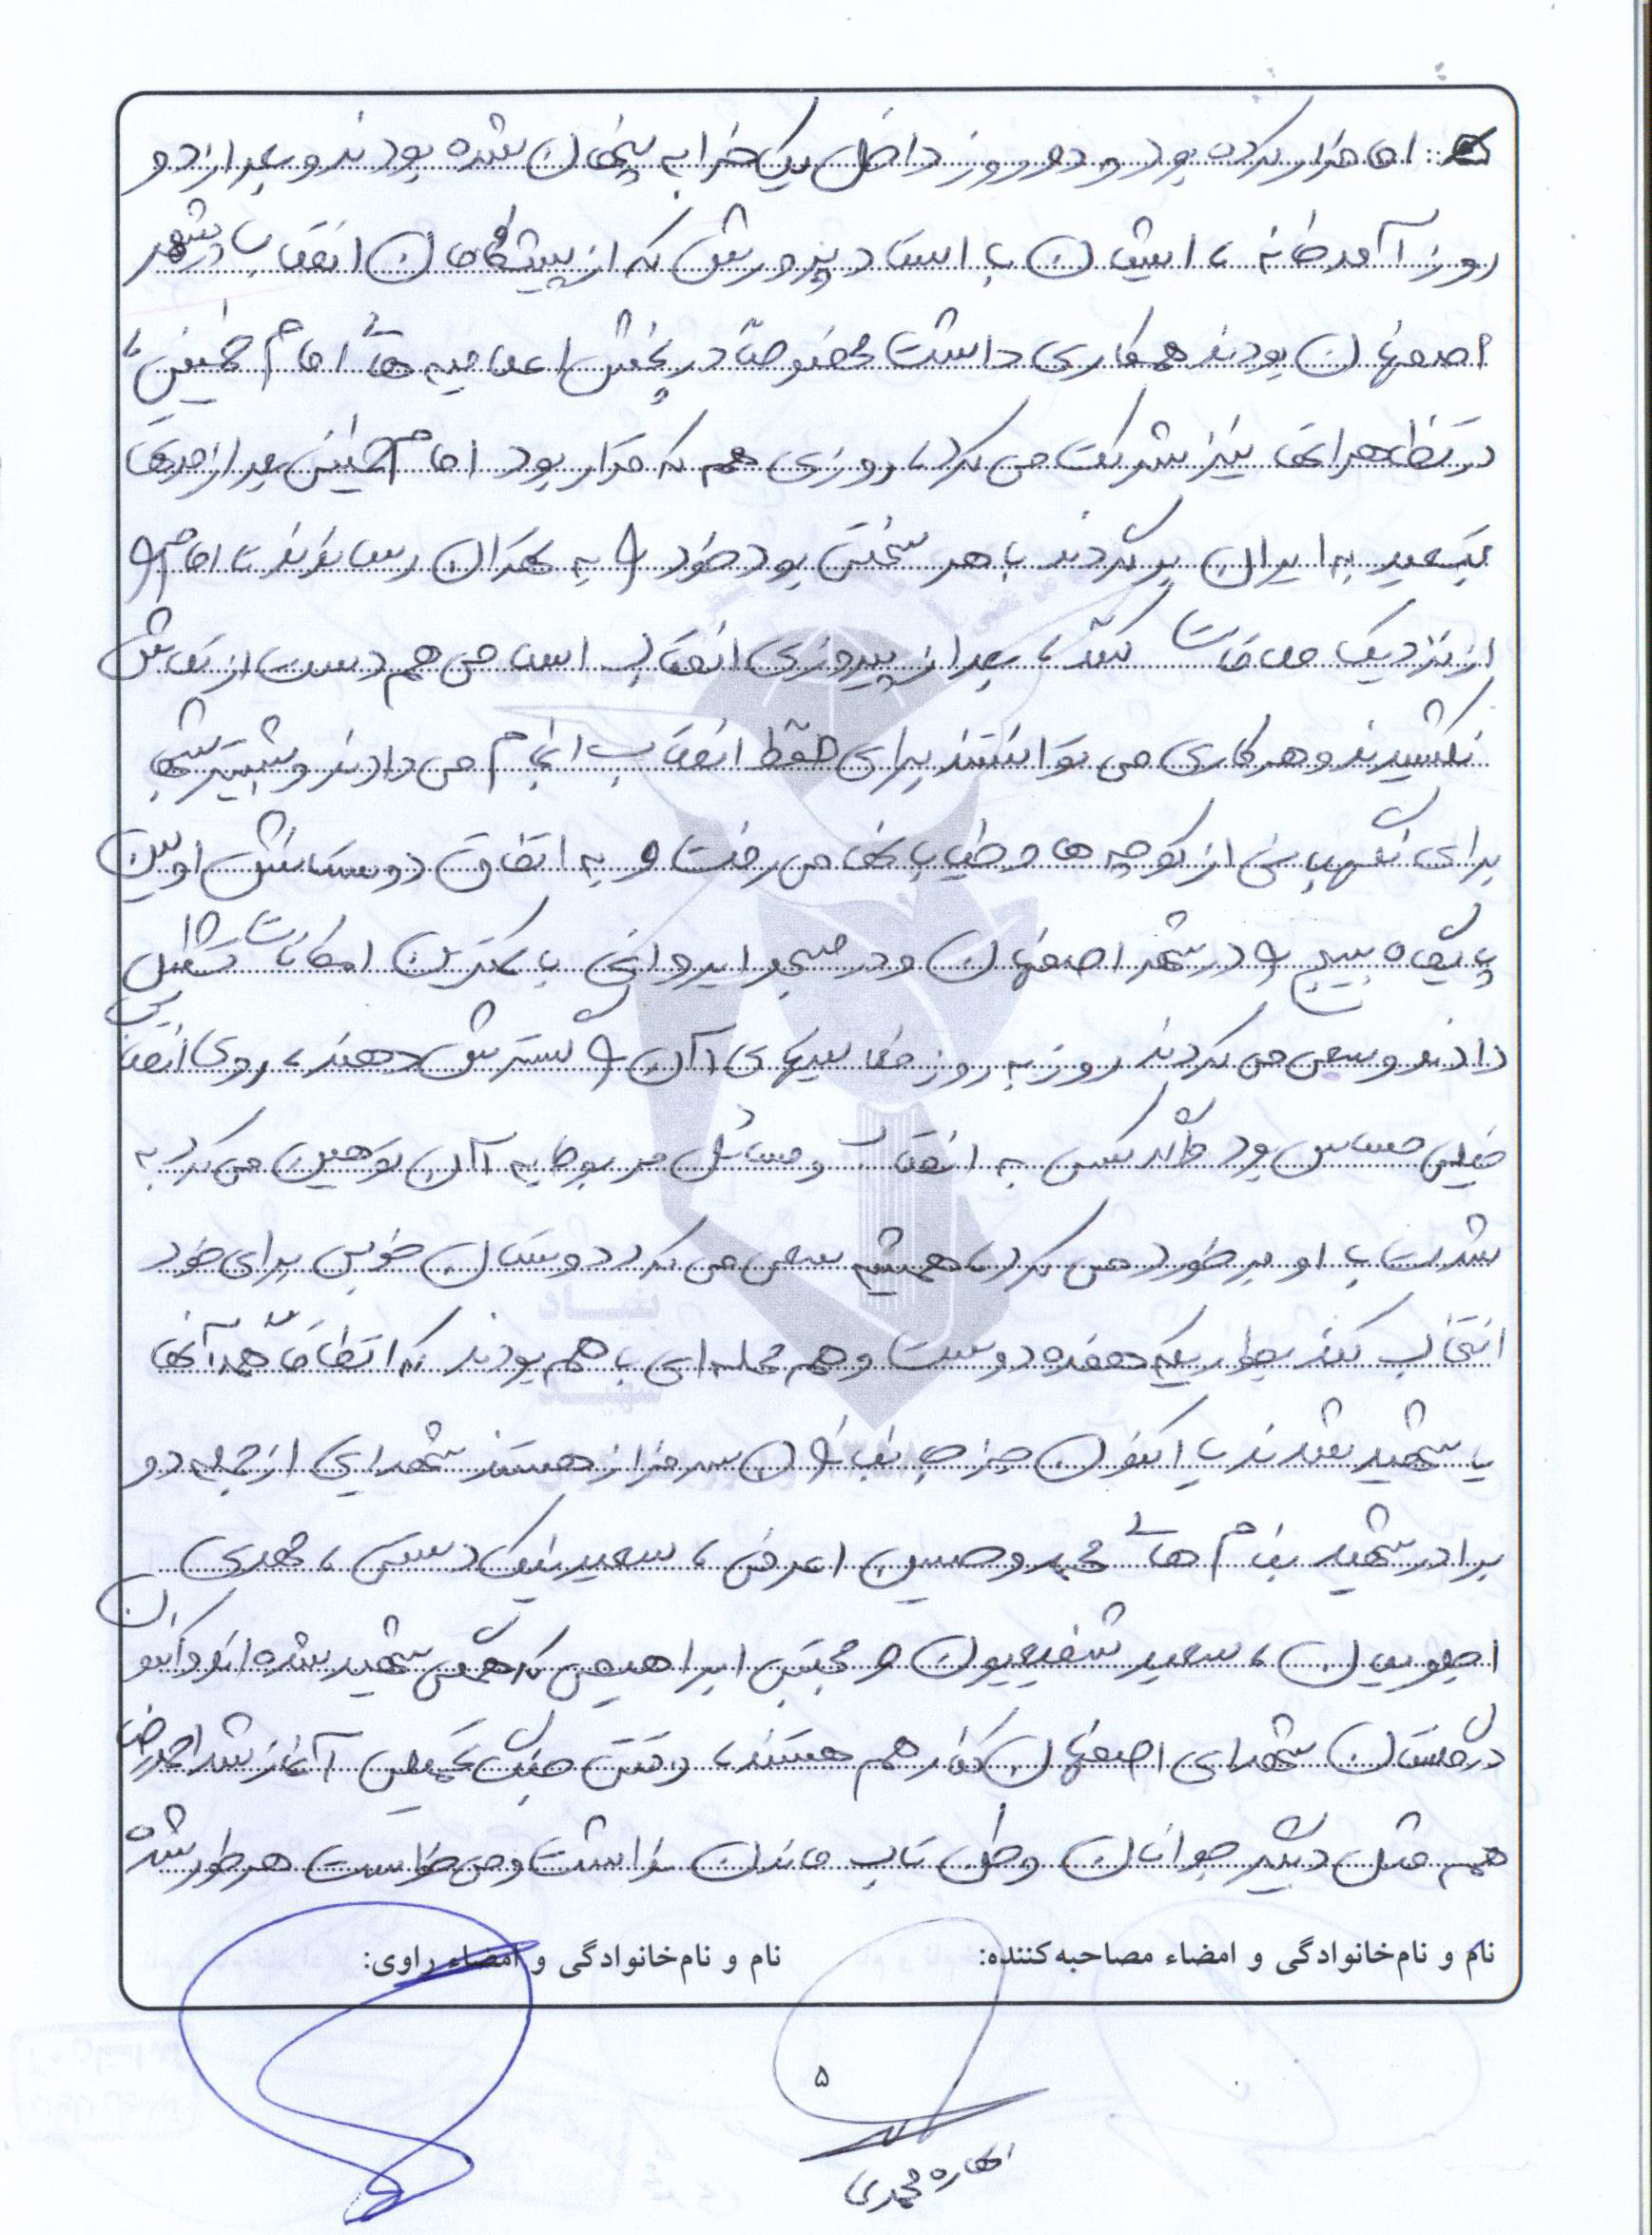 اما فرار کرده بود و دو روز داخل یک خرابه پنهان شده بودند و بعد از دو
روز آمد خانه، ایشان با استاد پرورش که از پیشگامان انقلاب در شهر
اصفهان بودند همکاری داشت مخصوصاً در پخش اعلامیه های امام خمینی،
در تظاهراتها نیز شرکت می کرد، روزی هم که قرار بود امام خمینی بعد از مدتها
تبعید به ایران برگردند با هر سختی بود خود را به تهران رساندند تا امام را
از نزدیک ملاقات کند، بعد از پیروزی انقلاب اسلامی هم دست از تلاش
نکشیدند و هر کاری می توانستند برای حفظ انقلاب انجام می دادند و بیشتر شبها
برای نگهبانی از کوچه ها و خیابانها می رفت و به اتفاق دوستانش اولین
پایگاه بسیج را در شهر اصفهان و در مسجد ایروانی با کمترین امکانات تشکیل
دادند و سعی می کردند روز به روز فعالیتهای آن را گسترش دهند، روی انقلاب
خیلی حساس بود و اگر کسی به انقلاب و مسائل مربوط به آن توهین می کرد به
شدت با او برخورد می کرد، همیشه سعی می کرد دوستان خوبی برای خود
انتخاب کند بطوریکه هفده دوست و هم محله ای با هم بودند که اتفاقاً همه آنها
یا شهید شدند یا اکنون جزء جانبازان سرفراز هستند شهدایی از جمله دو
برادر شهید بنام های محمد و حسین اعرفی، سعید نیک دستی، مهدی
اصولیان، سعید شفیعیون و مجتبی ابراهیمی که همگی شهید شده اند و اکنون
در گلستان شهدای اصفهان کنار هم هستند، وقتی جنگ تحمیلی آغاز شد احمدرضا
هم مثل دیگر جوانان وطن تاب ماندن نداشت و می خواست هر طور شده
نام و نام‌خانوادگی و امضاء مصاحبه‌کننده: نام و نام‌خانوادگی و امضاء راوی:
۵
محمدی